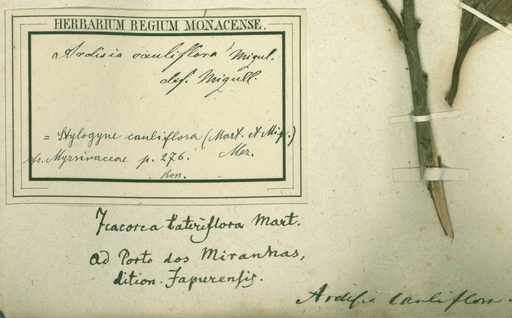 HERBARIUM REGIUM MONACENSE.
Ardisia cauliflora Miquel.
def. Miquel.
= Stylogyne cauliflora (Mart. et Miq.)
Mez.
Myrsinaceae p. 276.
Icacorea lateriflora Mart.
ad Porto dos Miranhas,
dition. Japurensis.
Ardisia cauliflora